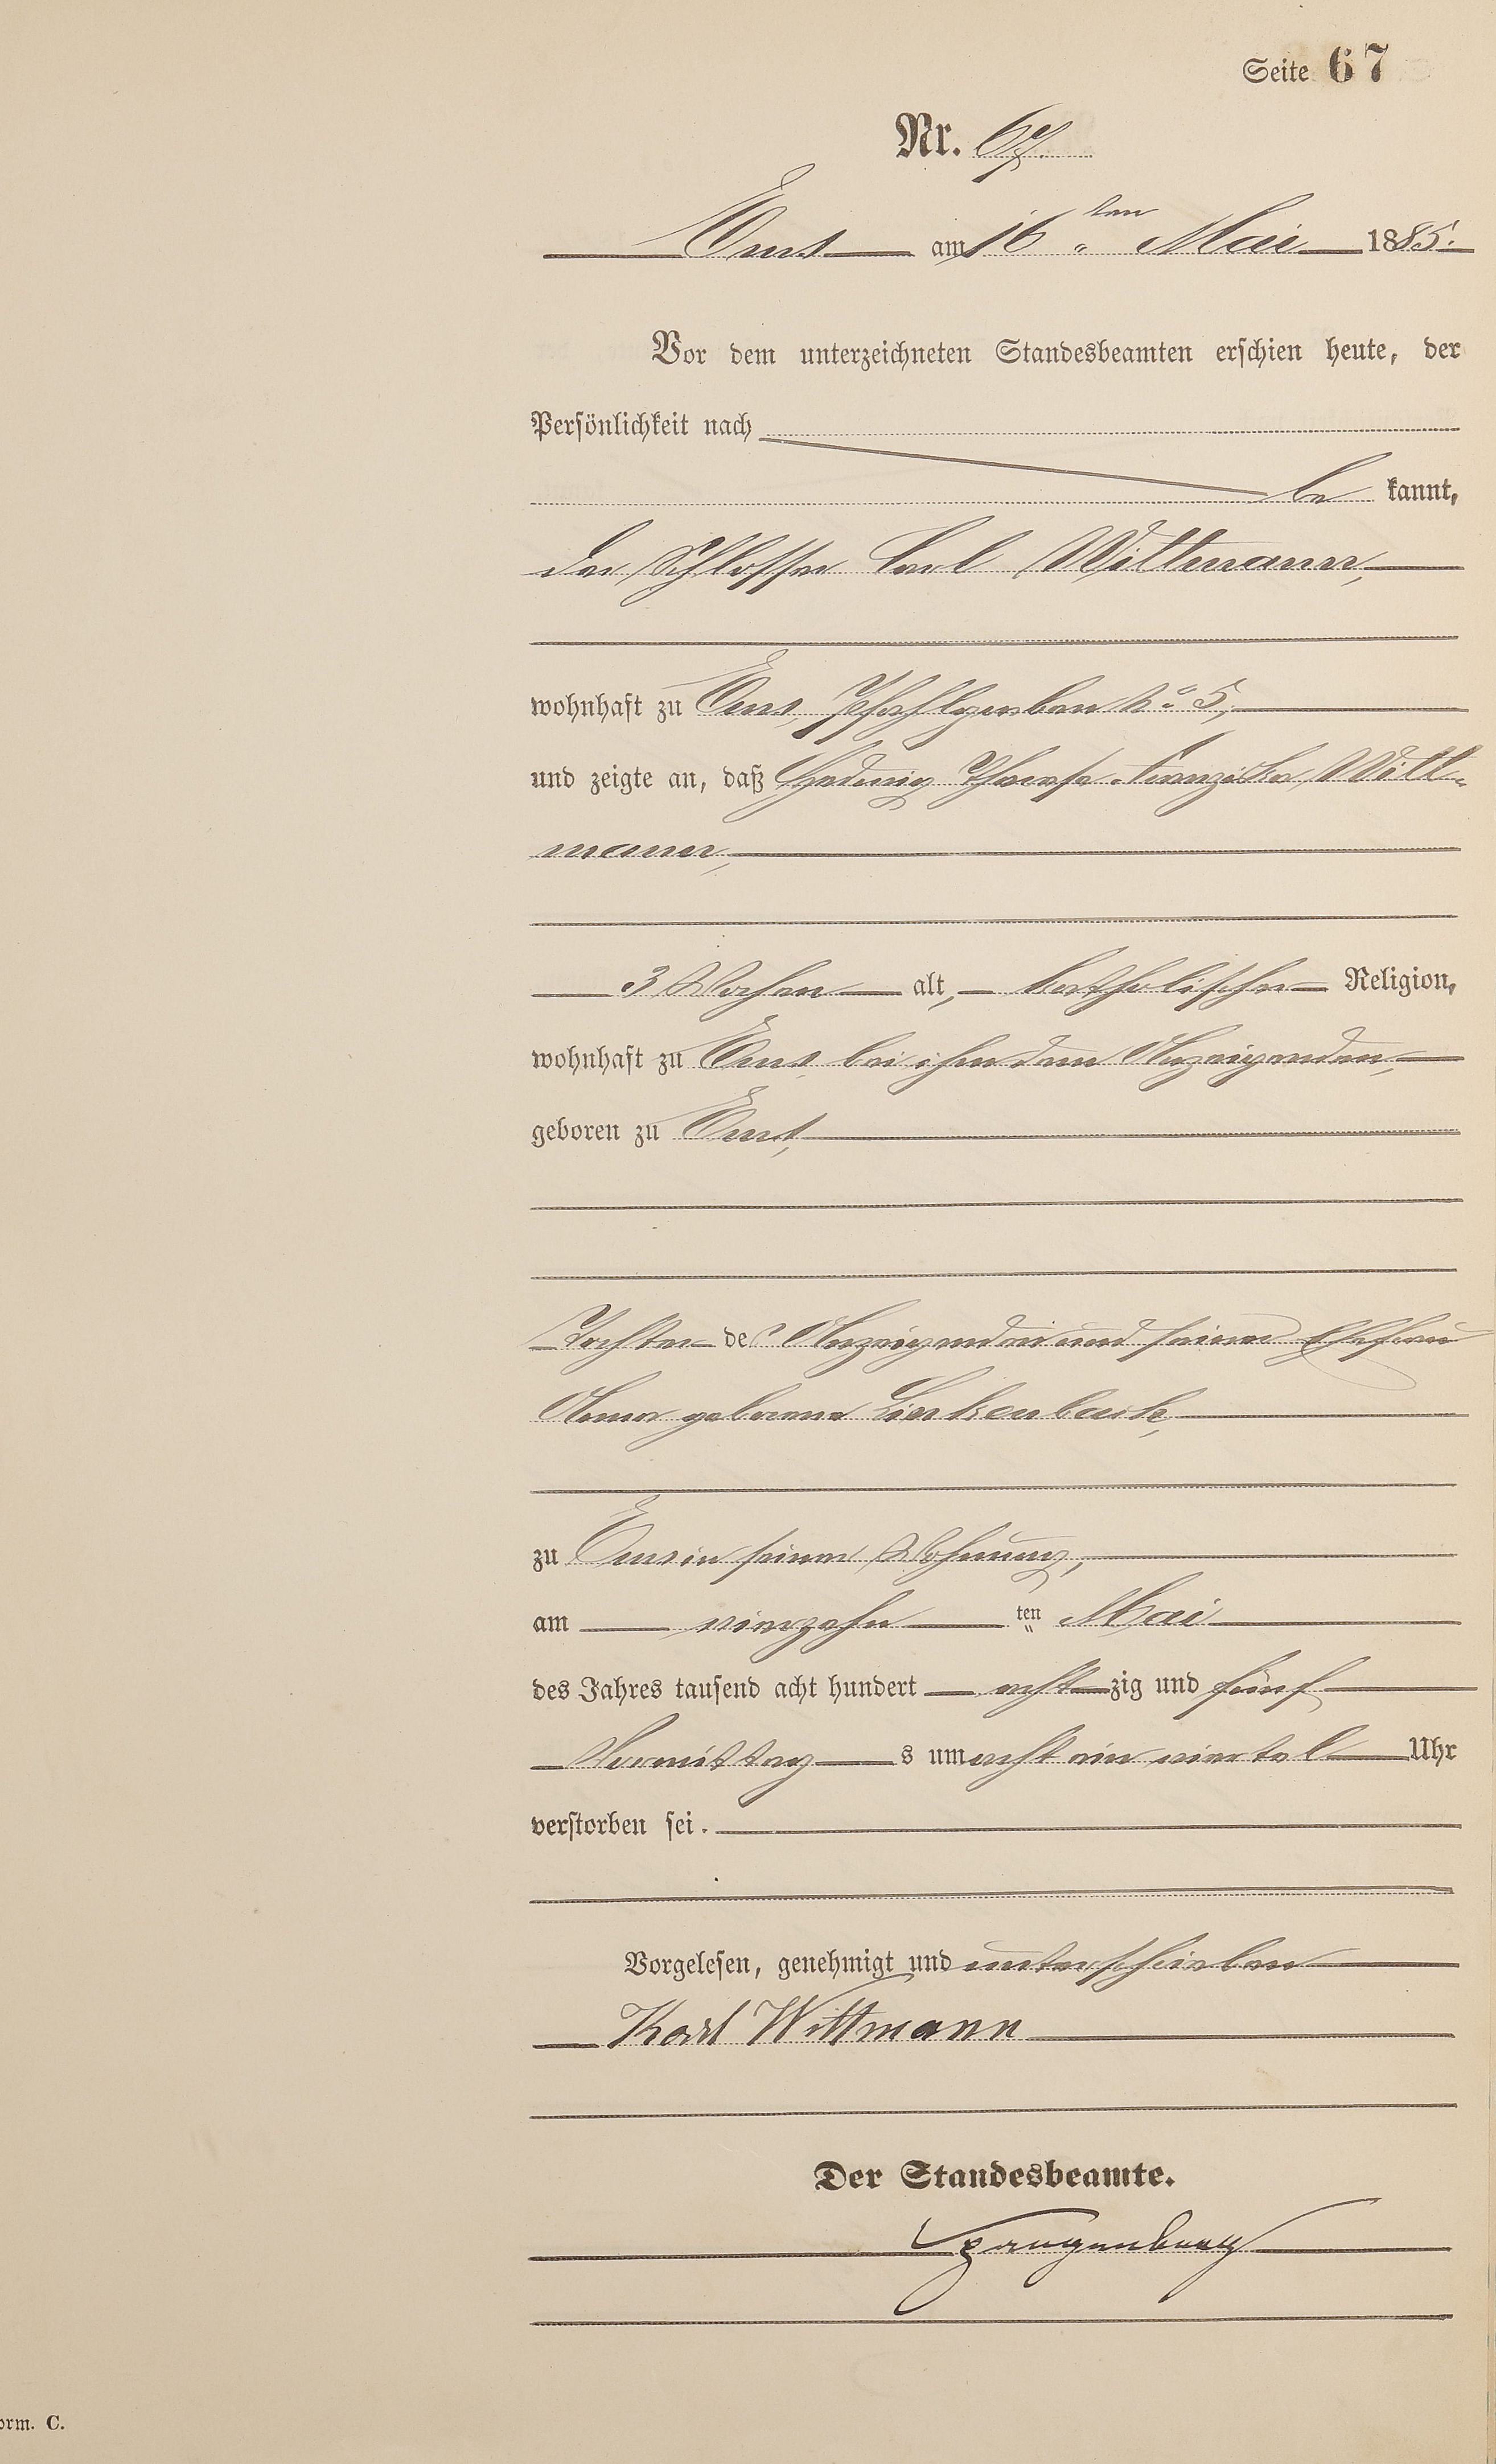 Seite 67
Nr. 67.
Ems am 16ten Mai 1885.
Vor dem unterzeichneten Standesbeamten erschien heute, der
Persönlichkeit nach
be kannt,
der Schlosser Carl Wittmann,
wohnhaft zu Ems, Pfahlgraben No 5,
und zeigte an, daß Hedwig Therese Franziska Witt-
mann,
3 Wochen alt, katholischer Religion,
wohnhaft zu Ems, bei ihm dem Anzeigenden,
geboren zu Ems,
Tochter des Anzeigenden und seiner Ehefrau
Anna geborene Linkenbach,
zu Ems in seiner Wohnung,
am vierzehn ten Mai
des Jahres tausend acht hundert acht zig und fünf
Vormittag s um acht ein viertel Uhr
verstorben sei.
Vorgelesen, genehmigt und unterschrieben
Karl Wittmann
Der Standesbeamte.
Spangenberg
orm. C.